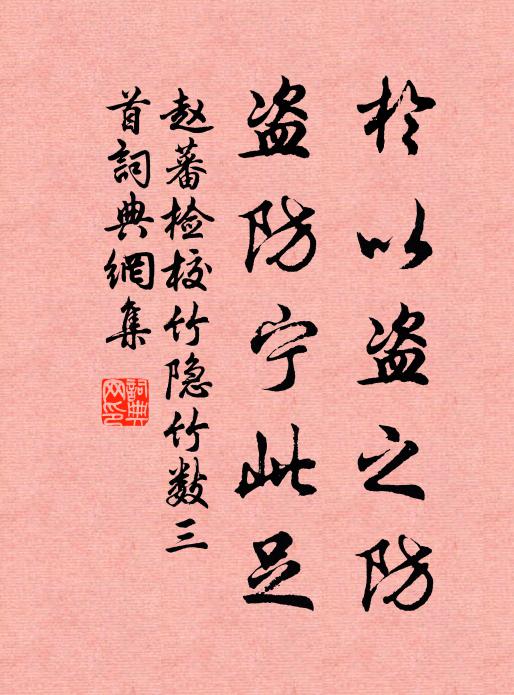 於以盗之防
盗防宁此足
赵蕃检校竹隐竹数三
首詞典網集
詞典網印